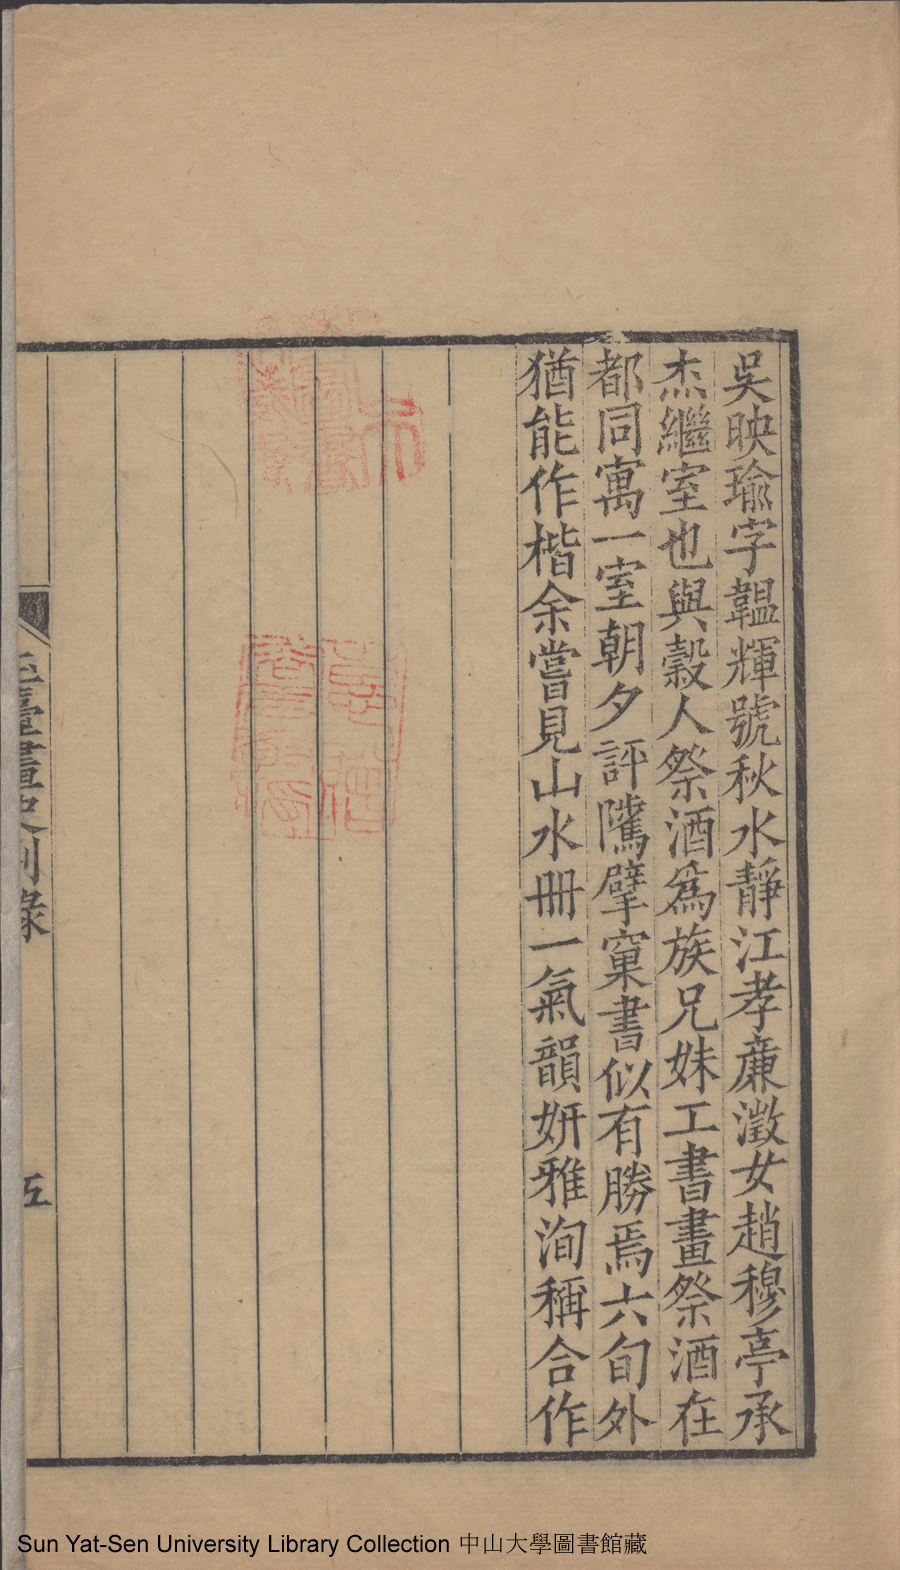 吳映瑜字韞輝號秋水靜江孝亷澂女趙穆亭承
杰繼室也與穀人祭酒爲族兄妹工書畫祭酒在
都同寓一室朝夕評隲擘窠書似有勝焉六旬外
猶能作楷余嘗見山水冊一氣韻妍雅洵稱合作
玉臺畫史別錄
五
Sun Yat-Sen University Library Collection 中山大學圖書館藏